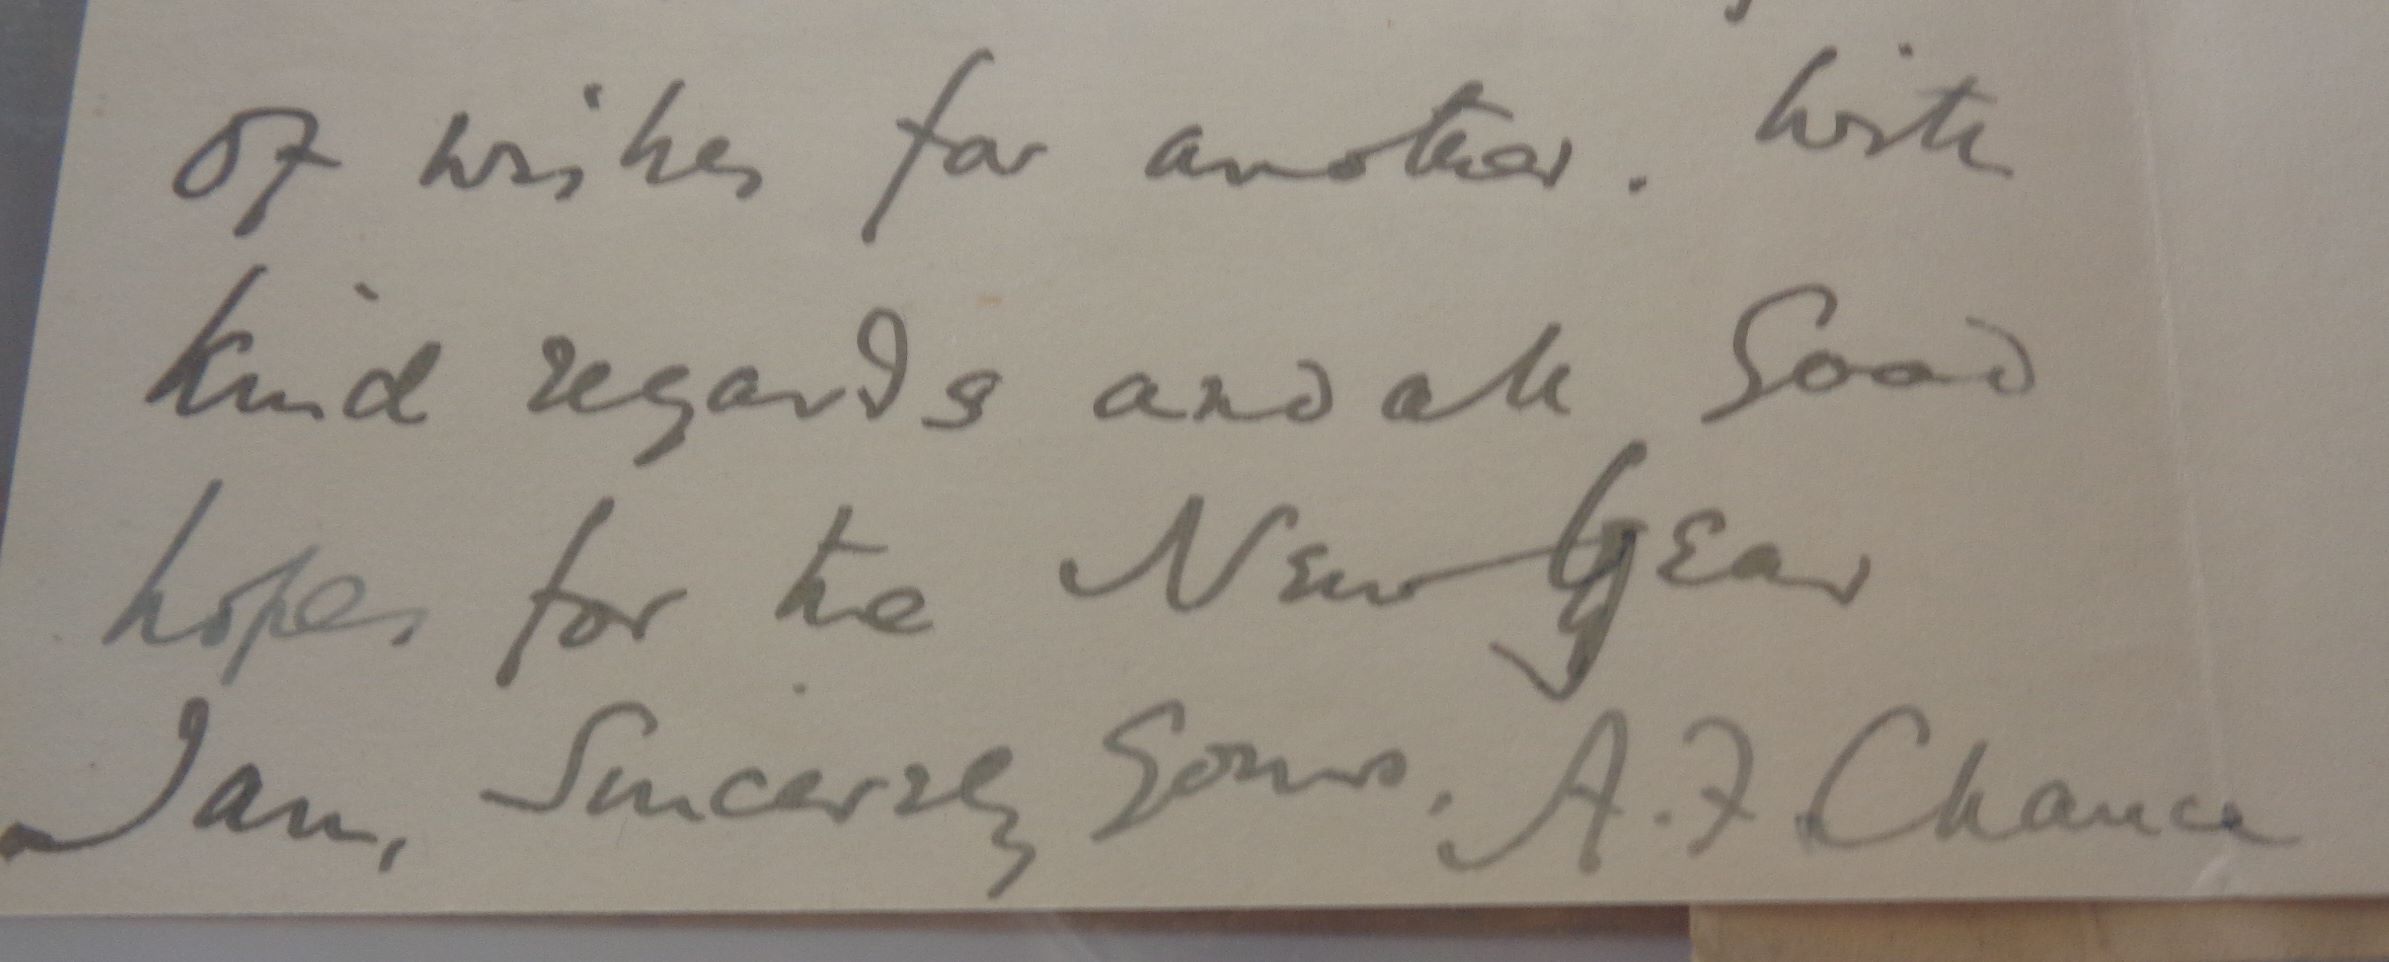 of wishes for another. With
kind regards and all Good
hopes for the New Year
I am, Sincerely Yours. A. F. Chance